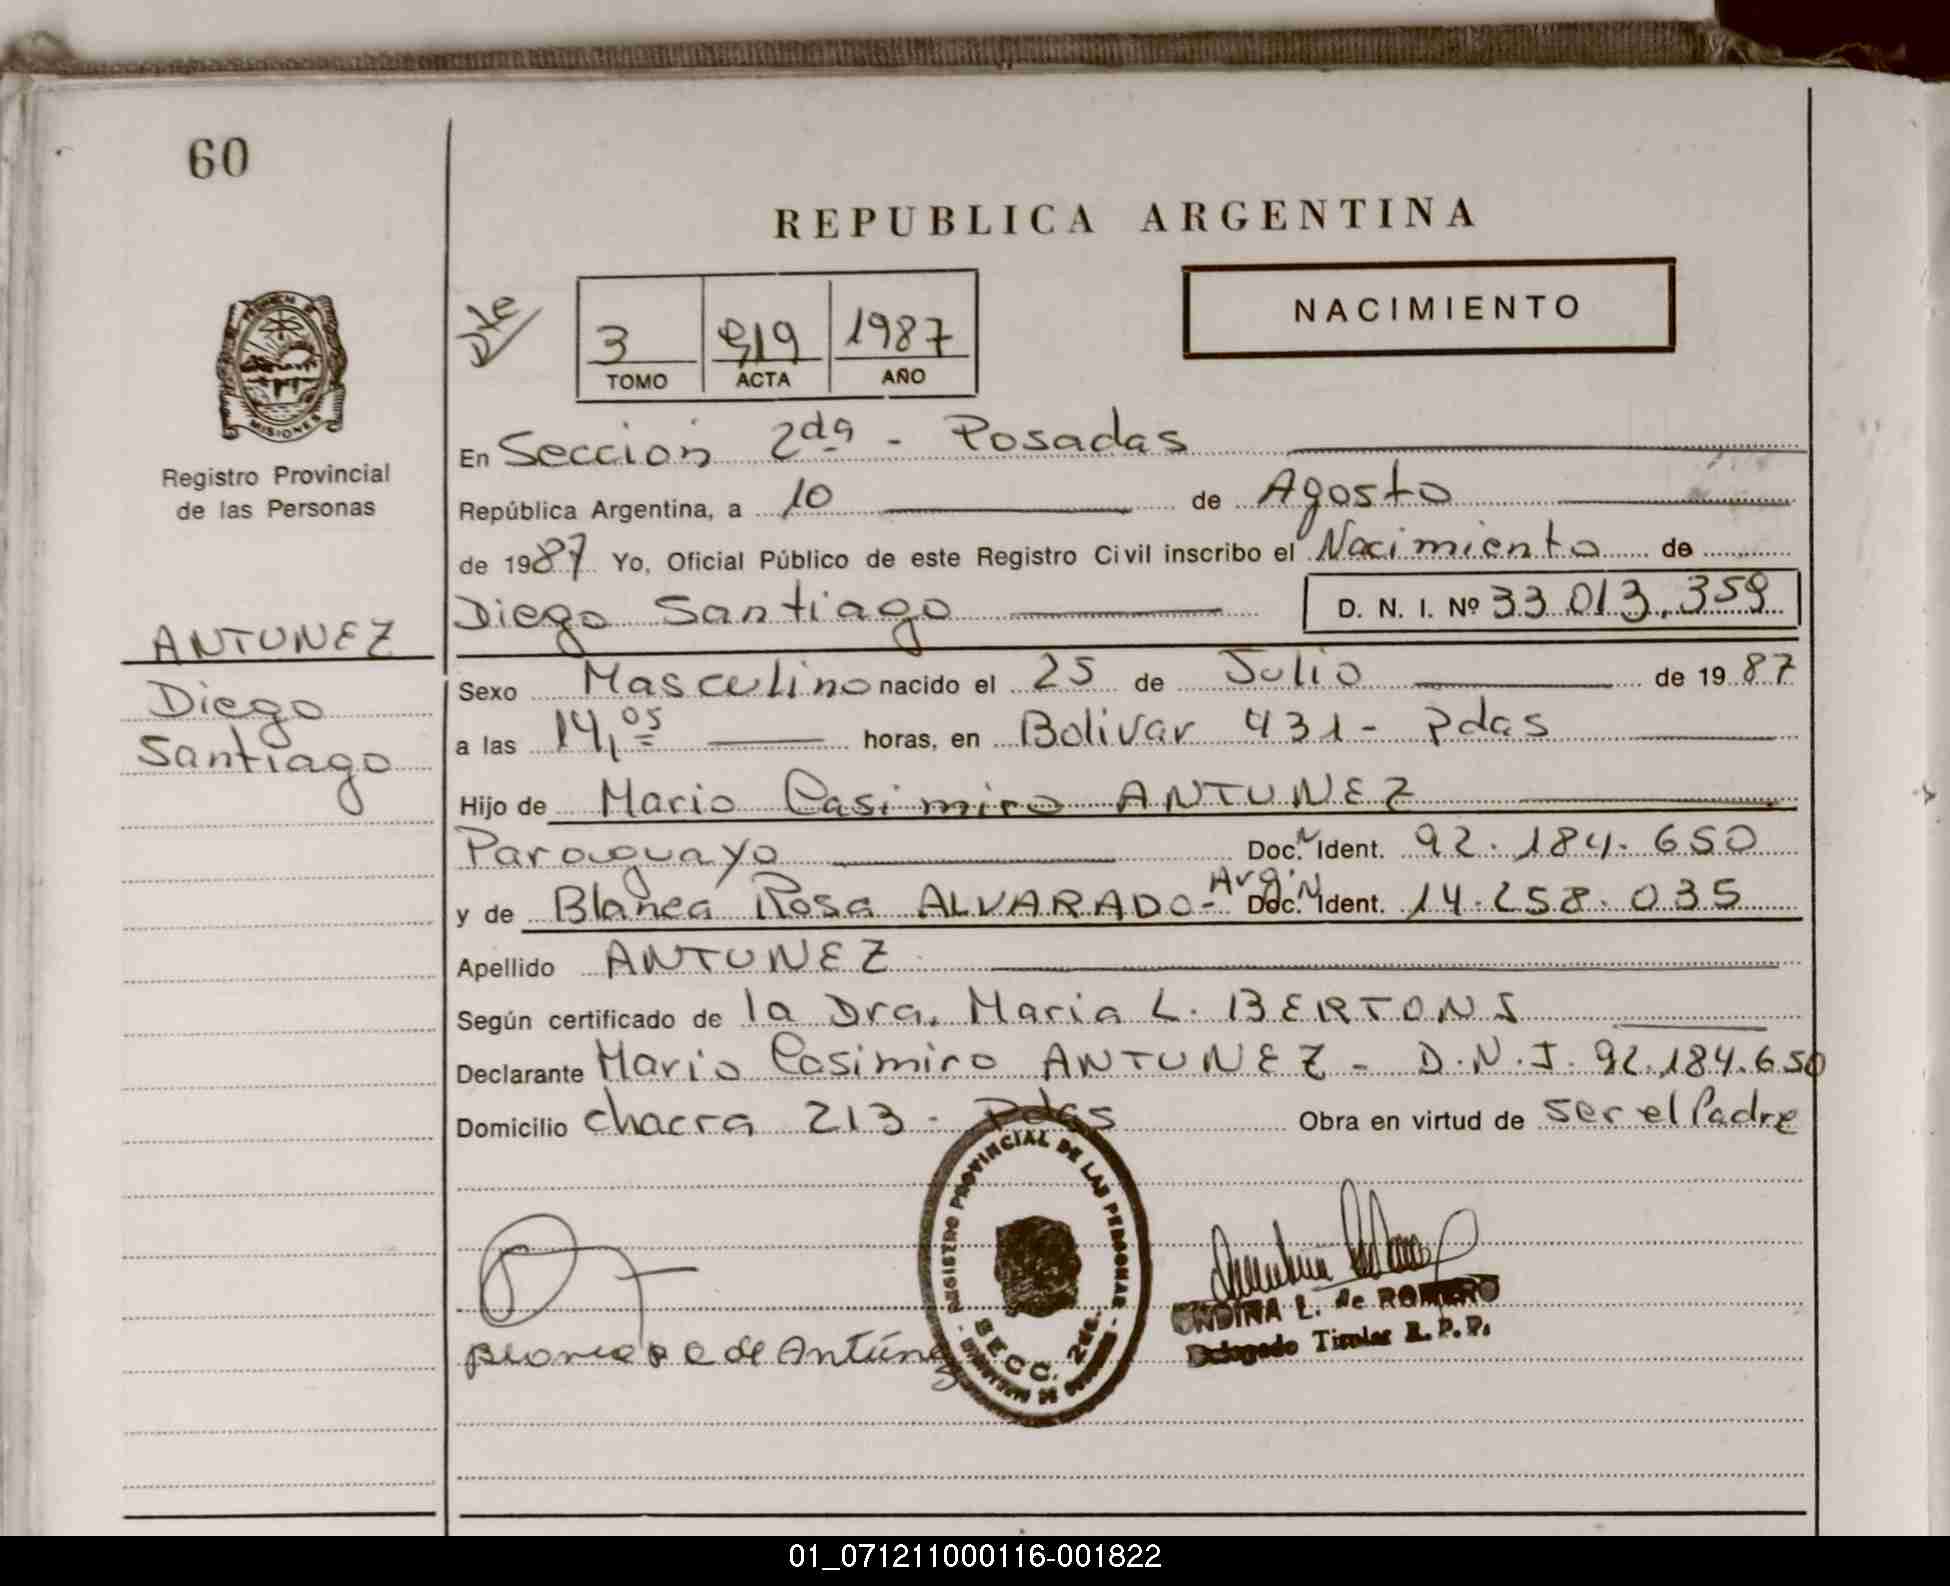 60
REPUBLICA ARGENTINA
NACIMIENTO
Dte
3 919 1987
TOMO ACTA AÑO
MISIONES
Registro Provincial
de las Personas
En Sección 2da - Posadas
República Argentina, a 10 de Agosto
de 1987 Yo, Oficial Público de este Registro Civil inscribo el Nacimiento de
Diego Santiago D. N. I. Nº 33.013.359
ANTUNEZ
Diego
Santiago
Sexo Masculino nacido el 25 de Julio de 1987
a las 14,05 horas, en Bolivar 431 - Pdas
Hijo de Mario Casimiro ANTUNEZ
Paraguayo Doc. N Ident. 92.184.650
y de Blanca Rosa ALVARADO - Arg. Doc. N Ident. 14.258.035
Apellido ANTUNEZ
Según certificado de la Dra. Maria L. BERTONI
Declarante Mario Casimiro ANTUNEZ - D.N.I. 92.184.650
Domicilio Chacra 213 - Pdas Obra en virtud de ser el Padre
REGISTRO PROVINCIAL DE LAS PERSONAS
SECC. 2da.
L. de ROMERO
Delegado Titular R. P. P.
de Antúnez
01_071211000116-001822